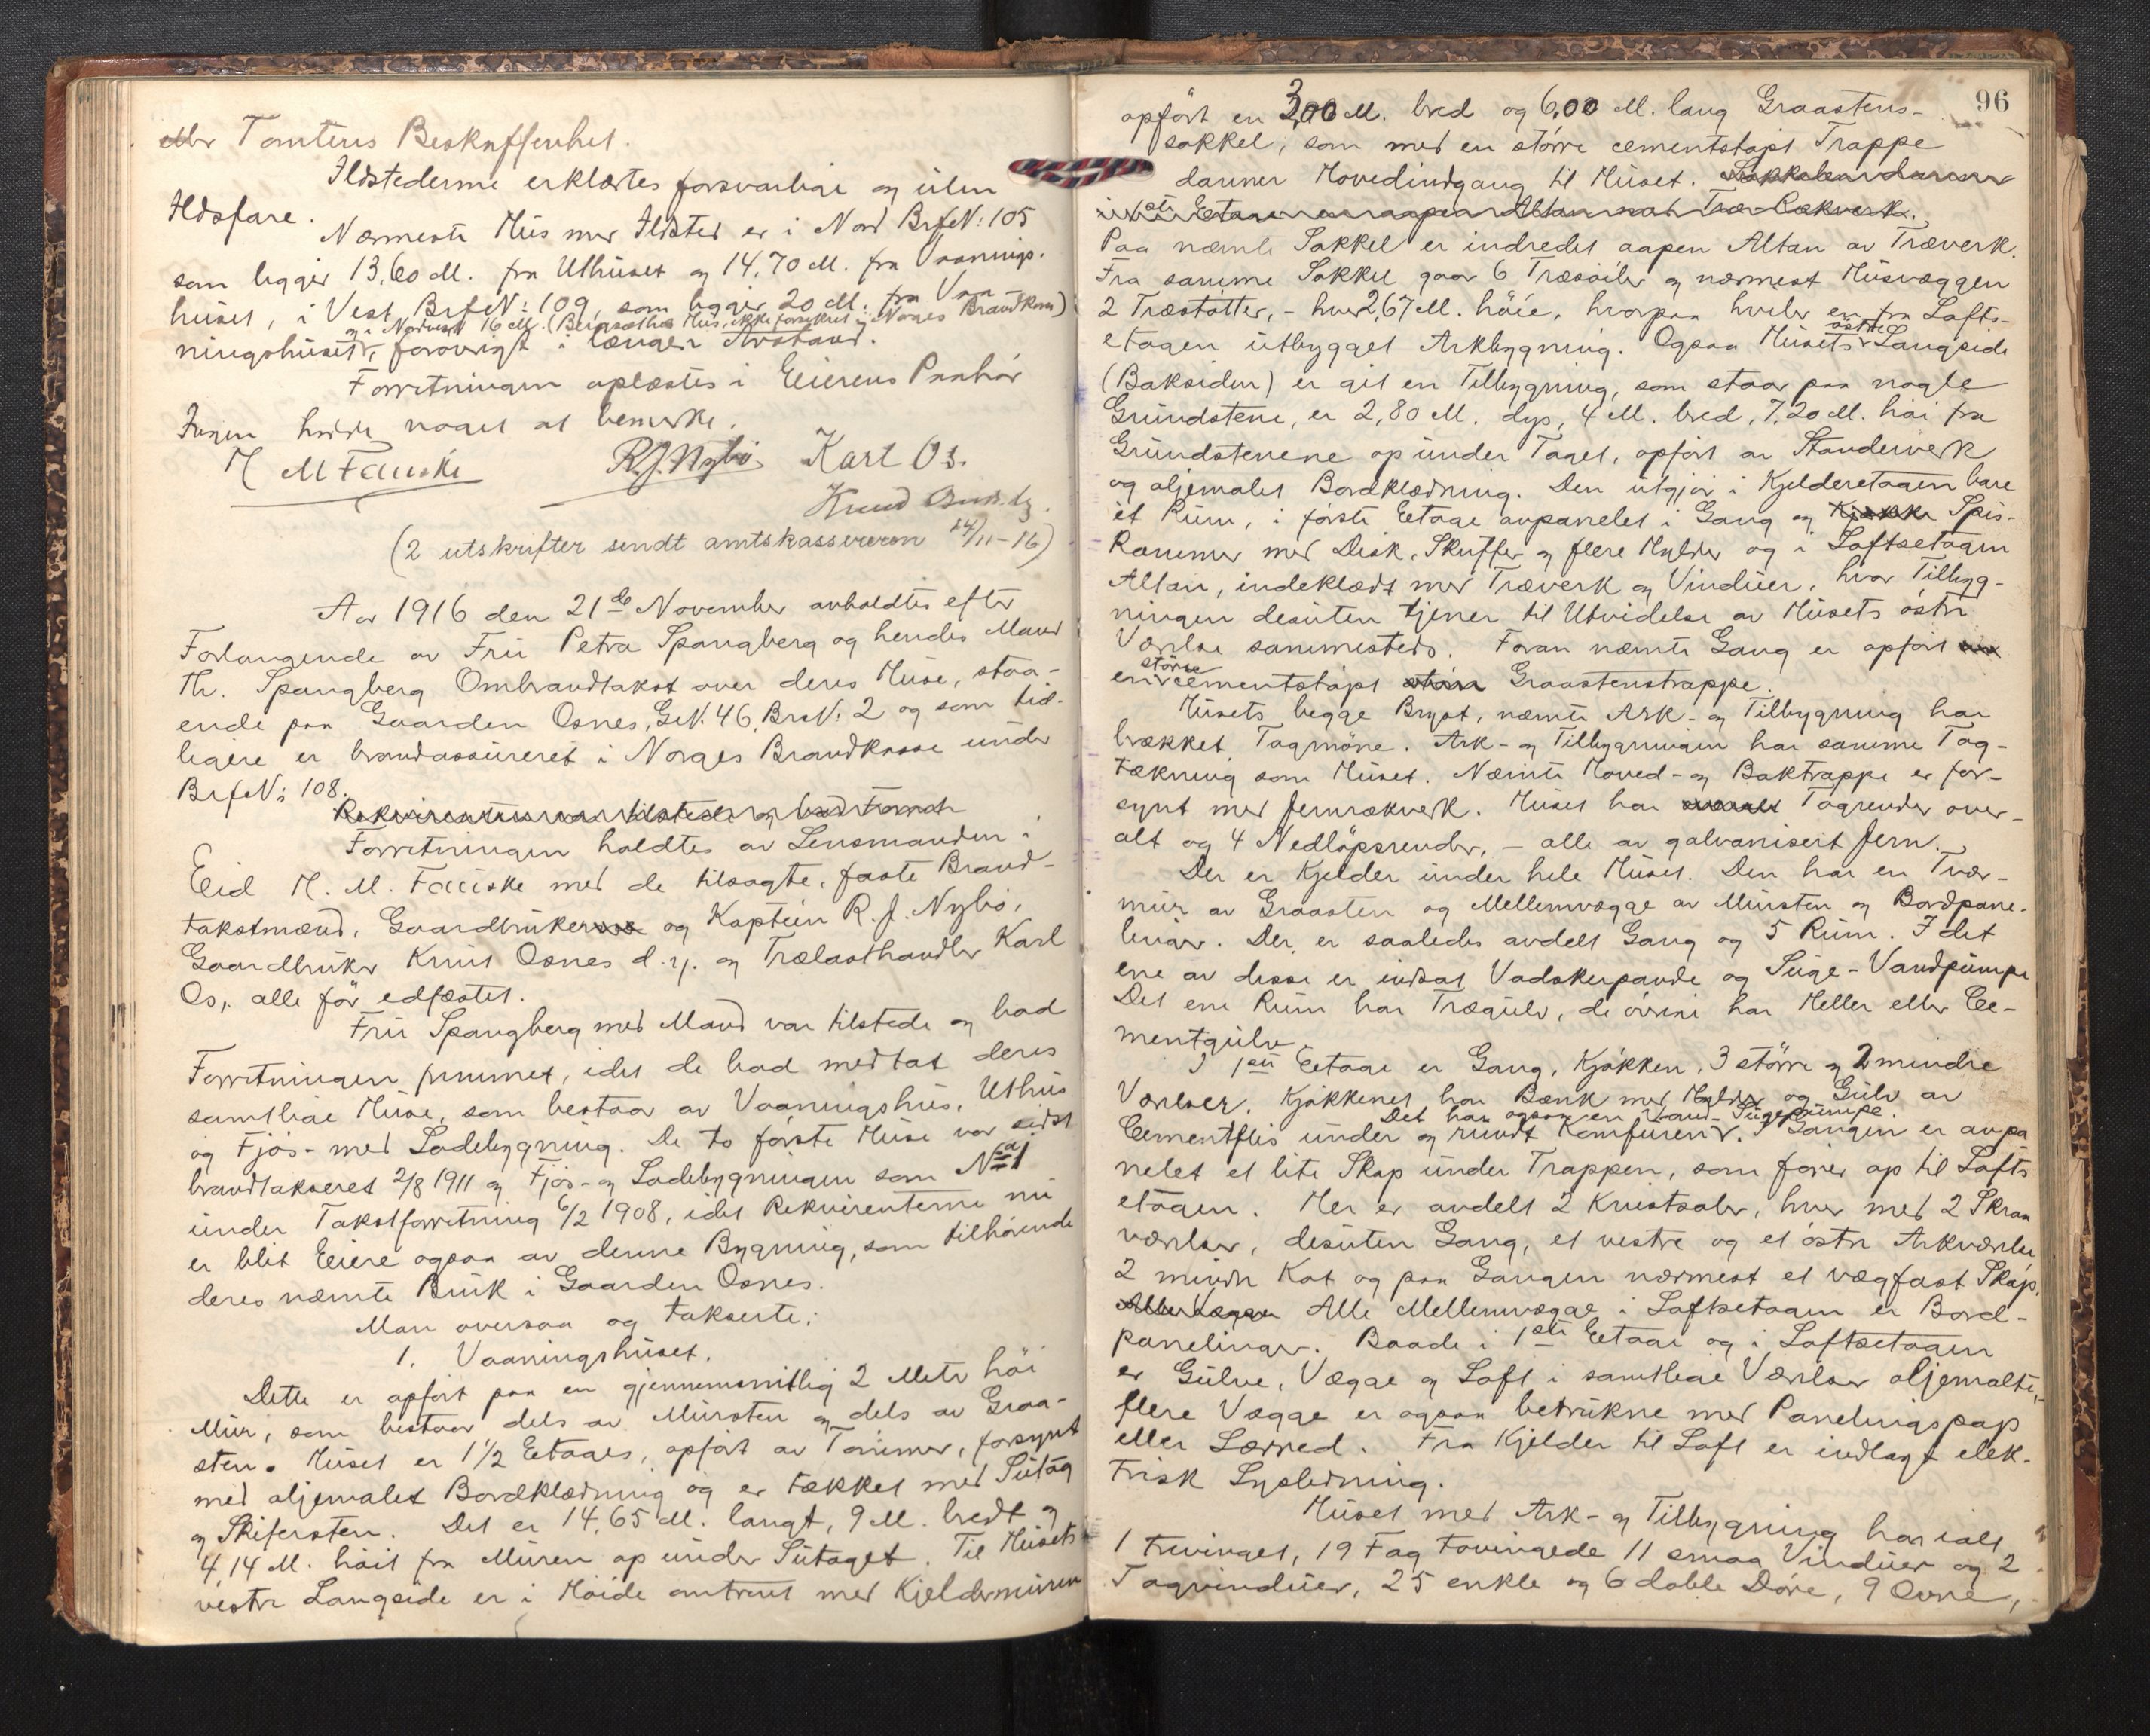 eller Tomtens Beskaffenhet.
Ildstederne erklærtes forsvarlige og uten
Ildsfare.
Nærmeste Hus mer Ildsted er i Nord BrfN: 105
som ligger 13,60 M. fra Uthuset og 14,70 M. fra Vaanings-
huset, i Vest BrfN: 109, som ligger 20 M. fra Vaa-
og i Nordvest 16 M. (Hus, ikke forsikret i Norges Brandkasse)
ningshuset, forøvrigt i længere Avstand.
Forretningen oplæstes i Eierens Paahør
Ingen hadde noget at bemerke.
H M Fauske R. J. Nybø Karl Os.
Knud
(2 utskrifter sendt amtskassereren 24/11-16)
Aar 1916 den 21de November avholdtes efter
Forlangende av Fru Petra Spangberg og hendes Mand
Th. Spangberg Ombrandtakst over deres Huse, staa-
ende paa Gaarden Osnes, GN. 46, BrN: 2 og som tid-
ligere er brandassureret i Norges Brandkasse under
BrfN: 108.
Rekvirenterne var tilstede og bad Forret
Forretningen holdtes av Lensmanden i
Eid H. M. Fauske med de tilsagte, faste Brand-
takstmænd, Gaardbruker og Kaptein R. J. Nybø,
Gaardbruker Knut Osnes d. y. og Trælasthandler Karl
Os, alle før edfæstet.
Fru Spangberg med Mand var tilstede og bad
Forretningen fremmet, idet de bad medtat deres
samtlige Huse, som bestaar av Vaaningshus, Uthus
og Fjøs- med Ladebygning. De to første Huse var sidst
brandtakseret 2/8 1911 og Fjøs- og Ladebygningen som N: 1
under Takstforretning 6/2 1908, idet Rekvirenterne nu
er blit Eiere ogsaa av denne Bygning, som tilhørende
deres nævnte Bruk i Gaarden Osnes.
Man oversaa og takserte:
1. Vaaningshuset.
Dette er opført paa en gjennemsnitlig 2 Meter høi
Mur, som bestaar dels av Mursten og dels av Graa-
sten. Huset er 1 1/2 Etages, opført av Tømmer, forsynt
med oljemalet Bordklædning og er tækket med Sutag
og Skifersten. Det er 14,65 M. langt, 9 M. bredt og
4,14 M. høit fra Muren op under Sutaget. Til Husets
vestre Langside er i Høide omtrent med Kjeldermuren
96
opført en 3,00 M. bred og 6,00 M. lang Graastens-
sokkel, som med en større cementstøpt Trappe
danner Hovedindgang til Huset. Sokkelen danner
i 1ste Etage en aapen Altan med Træ-Rækverk.
Paa nævnte Sokkel er indredet aapen Altan av Træverk.
Fra samme Sokkel gaar 6 Træsøiler og nærmest Husvæggen
2 Træstøtter, - hver 2,67 M. høie, hvorpaa hviler en fra Lofts-
etagen utbygget Arkbygning. Ogsaa Husets østre Langside
(Baksiden) er git en Tilbygning, som staar paa nogle
Grundstene, er 2,80 M. dyp, 4 M. bred, 7,20 M. høi fra
Grundstenene op under Taget, opført av Standerverk
og oljemalet Bordklædning. Den utgjør i Kjelderetagen bare
et Rum, i første Etage avpanelet i Gang og Kjøkke Spis-
kammer med Disk, Skuffer og flere Hylder og i Loftsetagen
Altan, indeklædt med Træverk og Vinduer, hvor Tilbyg-
ningen desuten tjener til Utvidelse av Husets østre
Værelse sammesteds. Foran nævnte Gang er opført
en større cementstøpt Graastenstrappe.
Husets begge Bryst, nævnte Ark- og Tilbygning har
brækket Tagmøne. Ark- og Tilbygningen har samme Tag-
tækning som Huset. Nævnte Hoved- og Baktrappe er for-
synt med Jernrækverk. Huset har Tagrender over-
alt og 4 Nedløpsrender, - alle av galvanisert Jern.
Der er Kjelder under hele Huset. Den har en Tvær-
mur av Graasten og Mellemvægge av Mursten og Bordpane-
linger. Der er saaledes avdelt Gang og 5 Rum. I det
ene av disse er indsat Vadskerpande og Suge-Vandpumpe
Det ene Rum har Trægulv, de øvrige har Heller eller Ce-
mentgulv.
I 1ste Etage er Gang, Kjøkken, 3 større og 2 mindre
Værelser. Kjøkkenet har Bænk med Hylder og Gulv av
Det har ogsaa en Vand-Sugepumpe.
Cementflis under og rundt Komfuren. I Gangen er avpa
nelet et lite Skap under Trappen, som fører op til Lofts
etagen. Her er avdelt 2 Kvistsaler, hver med 2 Skraa
værelser, desuten Gang, et vestre og et østre Arkværelse
2 mindre Kot og paa Gangen nærmest et vægfast Skap.
Alle Vægge Alle Mellemvægge i Loftsetagen er Bord-
panelinger. Baade i 1ste Etage og i Loftsetagen
er Gulve, Vægge og Loft i samtlige Værelser oljemalte,
flere Vægge er ogsaa betrukne med Panelingspap
eller Lærred. Fra Kjelder til Loft er indlagt elek-
trisk Lysledning.
Huset med Ark- og Tilbygning har ialt
1 trevinget, 19 Fag tovingede 11 smaa Vinduer og 2
Tagvinduer, 25 enkle og 6 doble Døre, 9 Ovne,